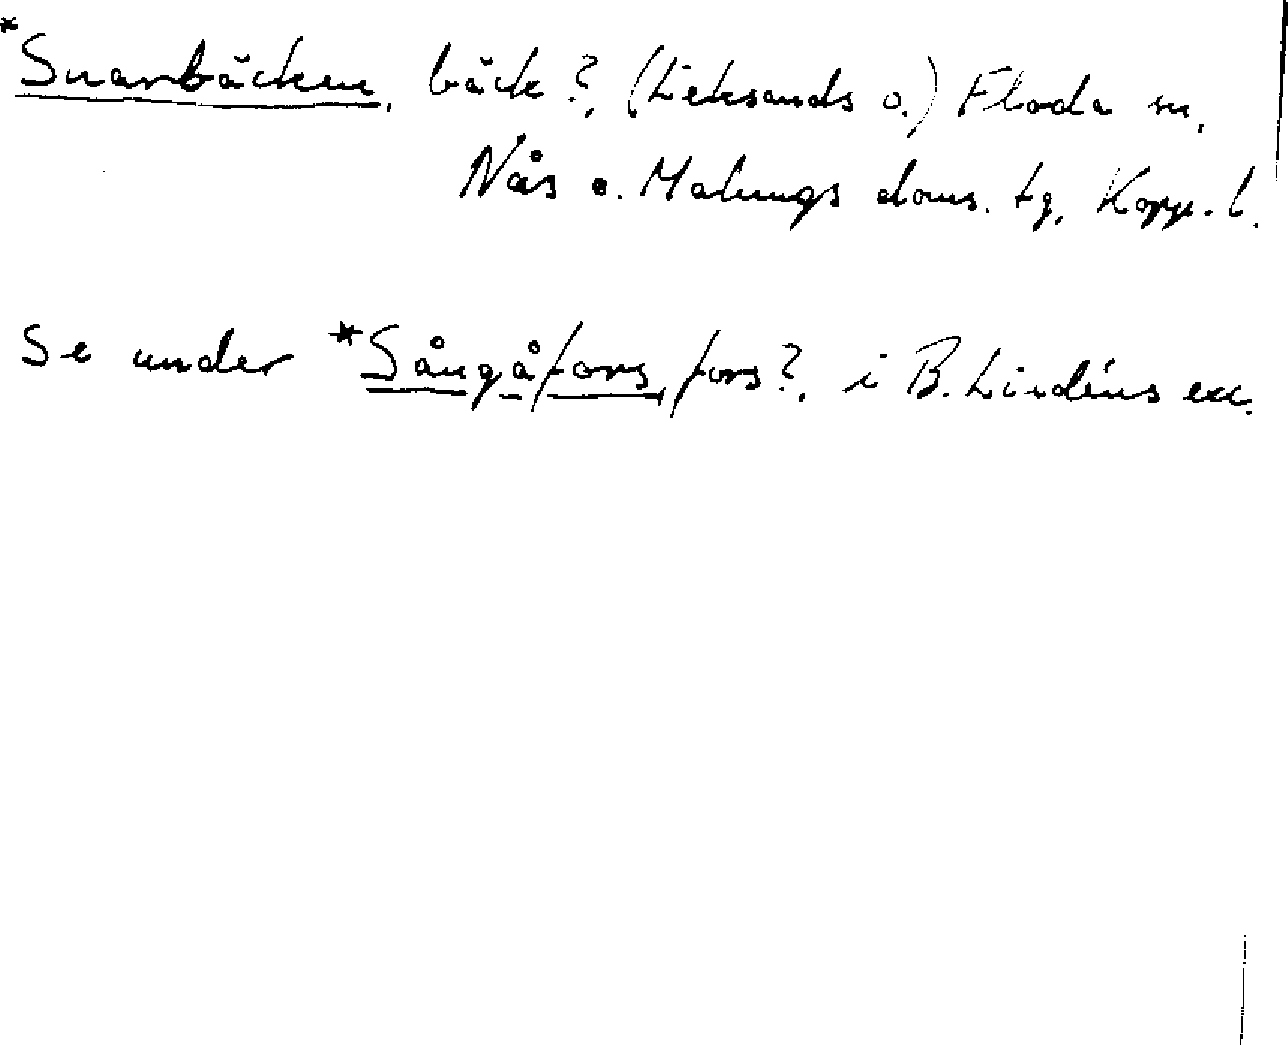 *Snarbäcken, bäck?, (Leksands o.) Floda sn,
Nås o. Malungs doms. tg, Kopp. l.
Se under *Sångåfors, fors?, i B. Lindéns exc.